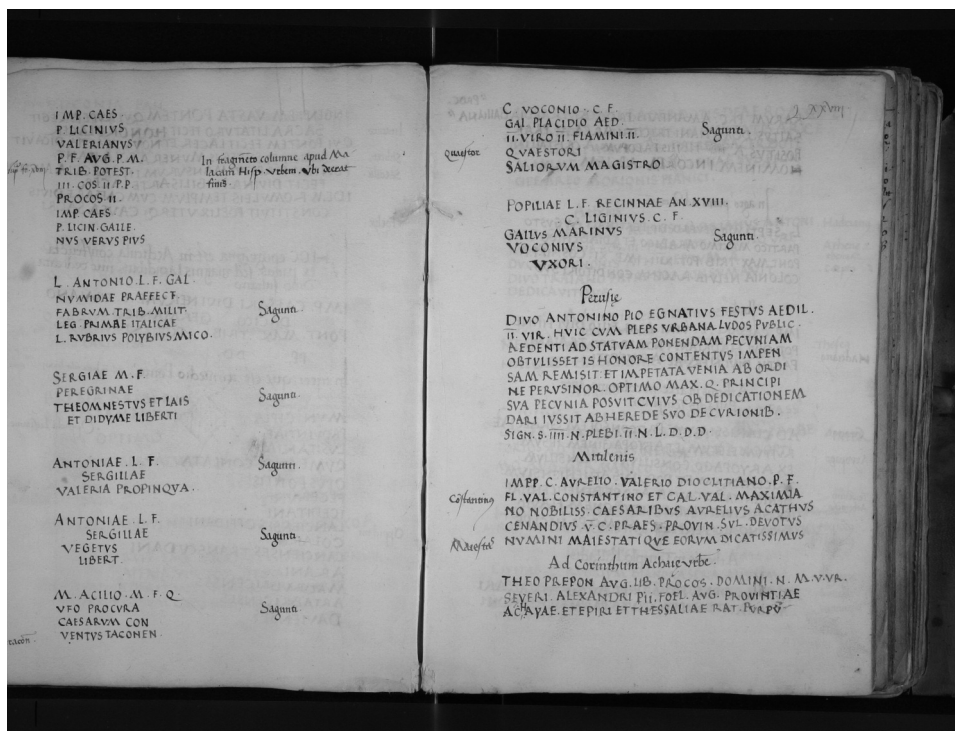 IMP. CAES.
P. LICINIVS
VALERIANVS
P. F. AVG. P. M.
TRIB. POTEST.
III. COS II. P. P
PROCOS II.
IMP. CAES
P. LICIN. GALLE.
NVS VERVS PIVS
In fragmēto columne apud Ma
lacam Hisp. Vrbem. Vbi
L. ANTONIO. L. F. GAL
NVMIDAE PRAFFECT.
FABRVM. TRIB. MILIT.
LEG. PRIMAE ITALICAE
L. RVBRIVS POLYBIVS MICO.
Sagunti.
SERGIAE M. F.
PEREGRINAE
THEOMNESTVS ET LAIS
ET DIDYME LIBERTI
Sagunti.
ANTONIAE. L. F.
SERGILLAE
VALERIA PROPINQVA.
Sagunti.
ANTONIAE. L. F.
SERGILLAE
VEGETVS
LIBERT.
Sagunti
M. ACILIO. M. F. Q
VFO PROCVRA
CAESARVM CON
VENTVS TACONEN.
Sagunti
racon.
XXVIII
C VOCONIO. C. F.
GAL. PLACIDIO AED.
II. VIRO II. FLAMINI. II.
QVAESTORI
SALIORVM MAGISTRO
Sagunti.
quaestor
POPILIAE L. F. RECINNAE AN. XVIII.
C. LIGINIVS. C. F.
GALLVS MARINVS
VOCONIVS
VXORI.
Sagunti.
Perusie
DIVO ANTONINO PIO EGNATIVS FESTVS AEDIL.
II. VIR. HVIC CVM PLEPS VRBANA LVDOS PVBLIC.
AEDENTI AD STATVAM PONENDAM PECVNIAM
OBTVLISSET IS HONORE CONTENTVS IMPEN
SAM REMISIT ET IMPETATA VENIA AB ORDI
NE PERVSINOR. OPTIMO MAX. Q. PRINCIPI
SVA PECVNIA POSVIT CVIVS OB DEDICATIONEM
DARI IVSSIT AB HEREDE SVO DECVRIONIB.
SIGN. S. IIII. N. PLEBI. II. N. L. D. D. D.
Mitilenis
IMPP. C. AVRELIO. VALERIO DIOCLITIANO. P. F.
FL. VAL. CONSTANTINO ET GAL. VAL. MAXIMIA
NO NOBILISS. CAESARIBVS AVRELIVS ACATHVS
CENANDIVS V. C. PRAES. PROVIN. SVL. DEVOTVS
NVMINI MAIESTATI QVE EORVM DICATISSIMVS
Cōstantinus
Maiestas
Ad Corinthum Achaie vrbē.
THEO PREPON AVG. LIB. PROCOS. DOMINI. N. M. V. VR.
SEVERI. ALEXANDRI PII. FOEL. AVG. PROVINTIAE
ACHAYAE. ET EPIRI ET THESSALIAE RAT. PVRPV